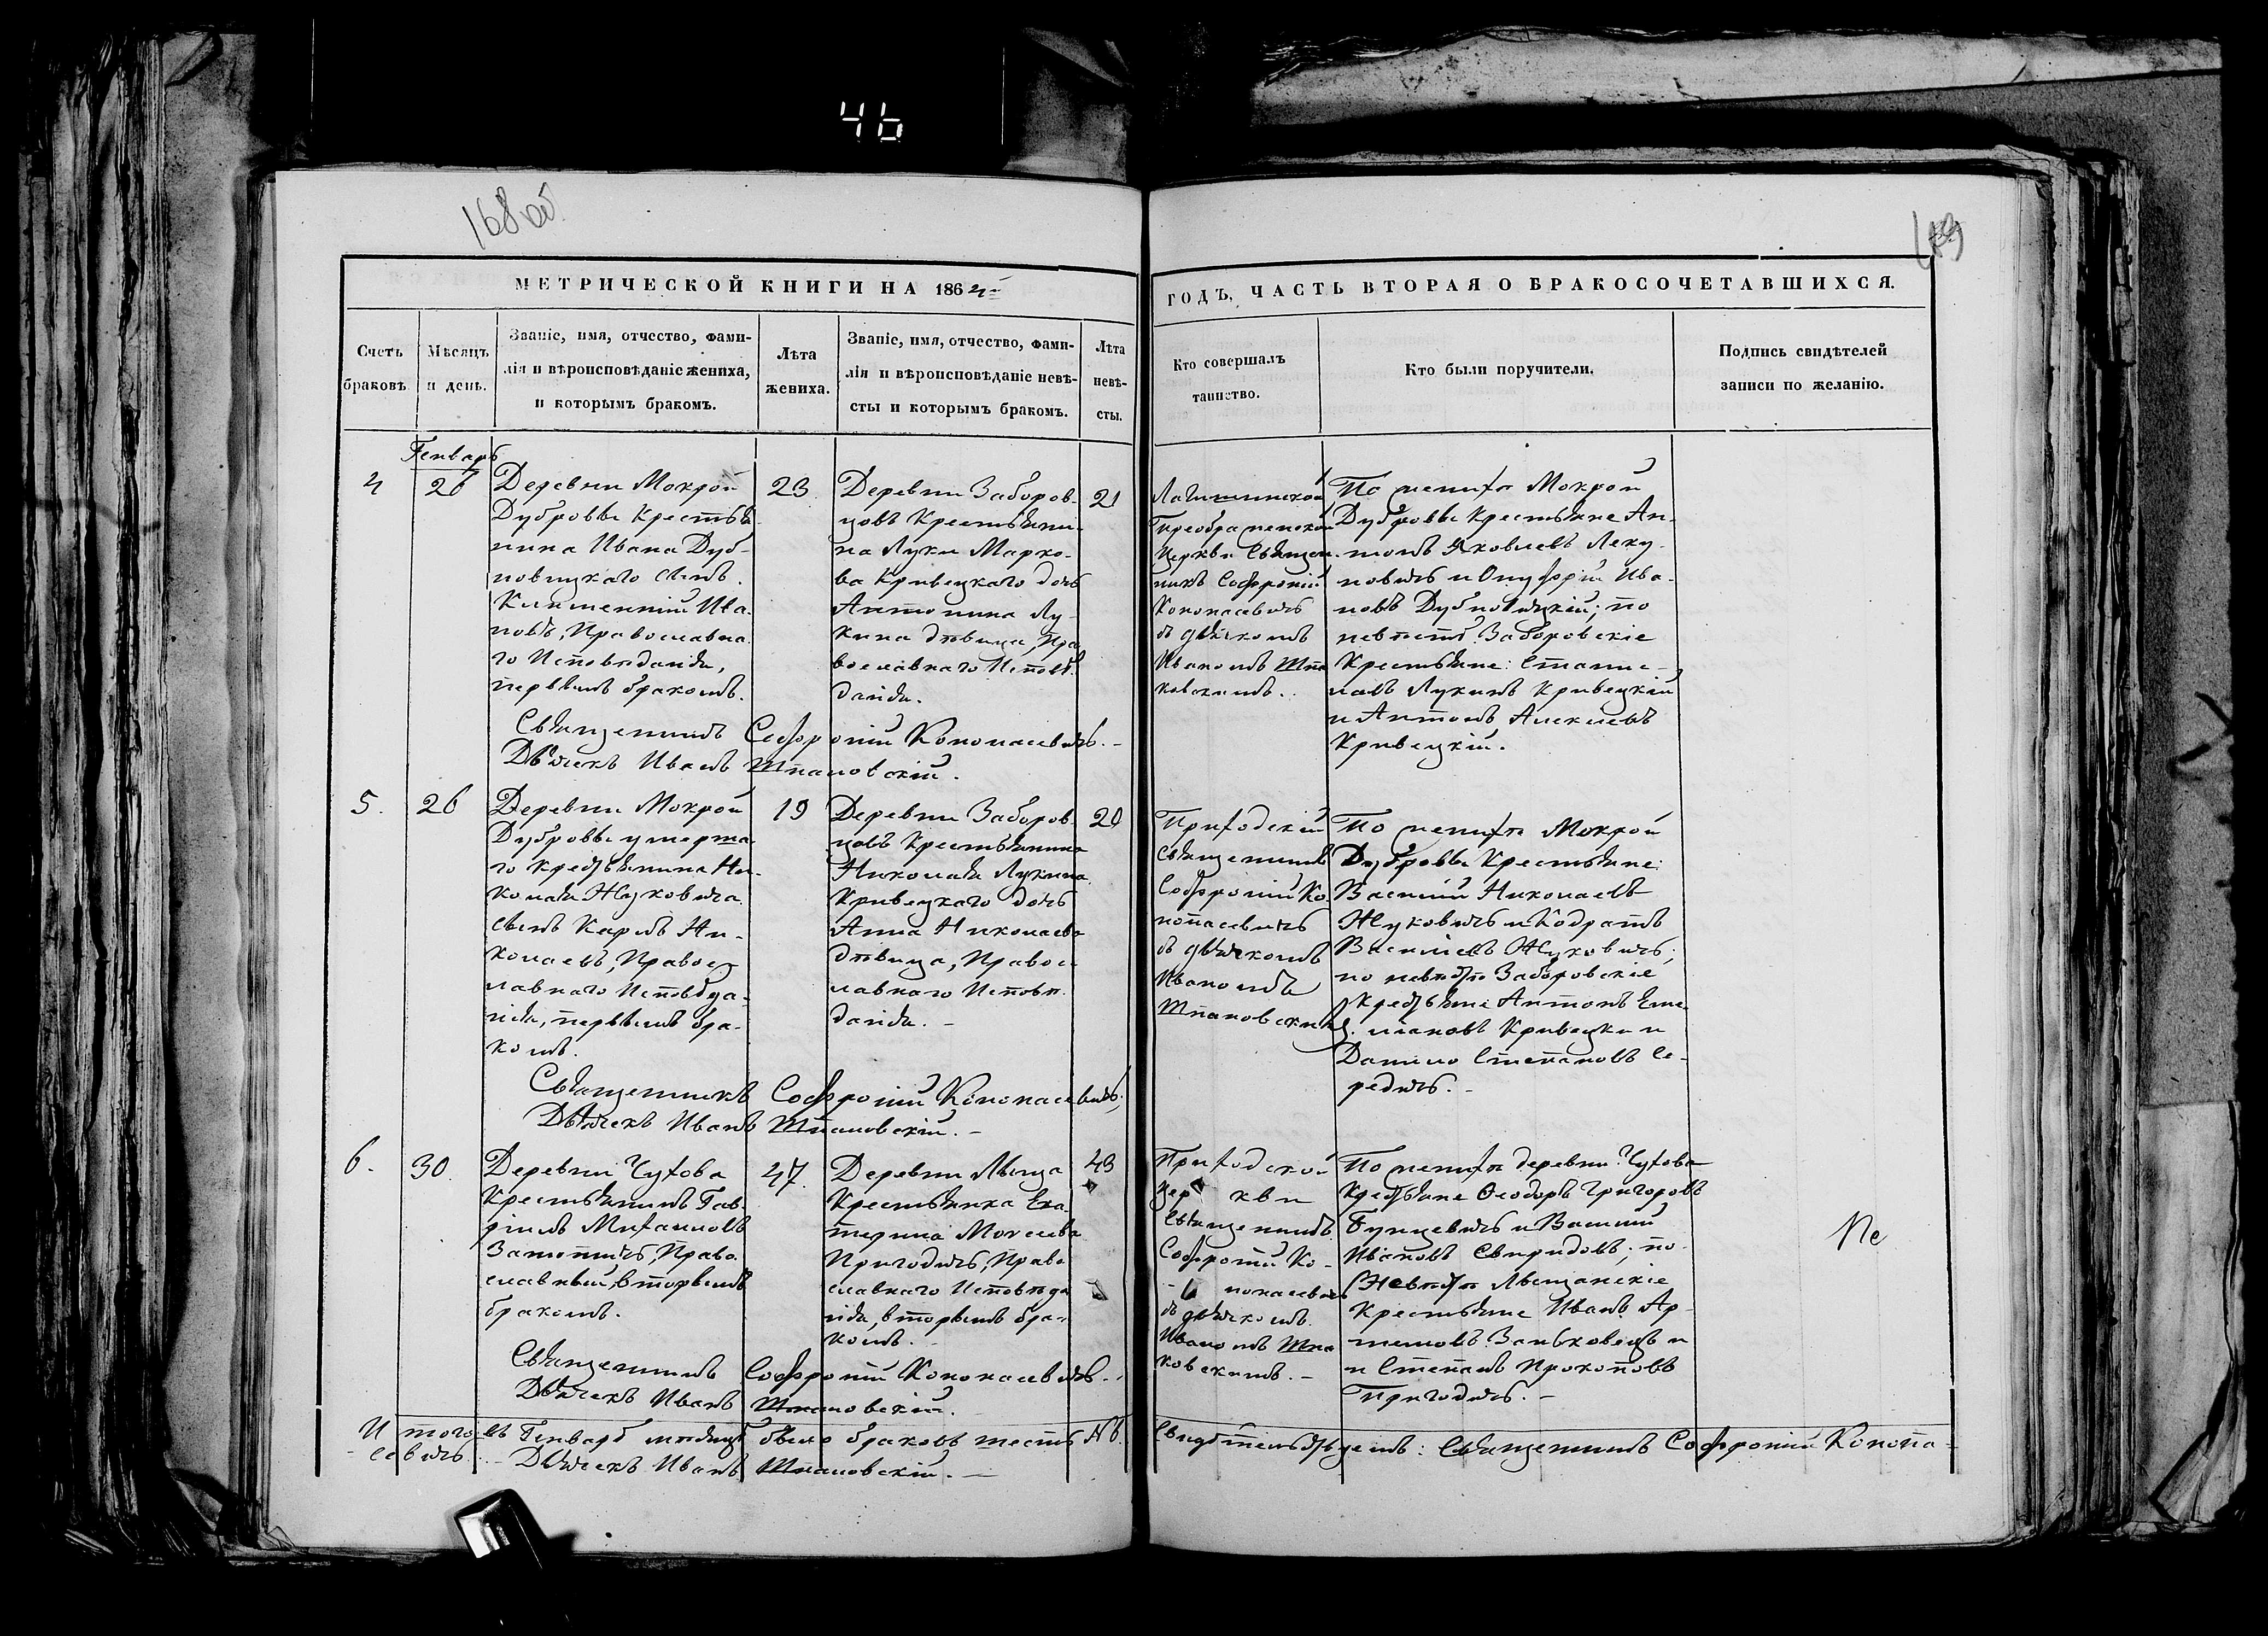 46
168 об
169
МЕТРИЧЕСКОЙ КНИГИ НА 1864й
ГОДЪ, ЧАСТЬ ВТОРАЯ О БРАКОСОЧЕТАВШИХСЯ.
Счетъ браковъ.
Мѣсяцъ и день.
Званіе, имя, отчество, фами-
лія и вѣроисповѣданіе жениха,
и которымъ бракомъ.
Лѣта жениха.
Званіе, имя, отчество, фами-
лія и вѣроисповѣданіе невѣ-
сты и которымъ бракомъ.
Лѣта невѣ-
сты.
Кто совершалъ
таинство.
Кто были поручители.
Подпись свидѣтелей
записи по желанію.
Генварь
4
26
Деревни Мокрой
Дубровы Крестья-
нина Ивана Дуб-
новицкаго сынъ
Климентій Ива-
новъ, Православна-
го Исповѣданія,
первымъ бракомъ.
23
Деревни Заборов-
цовъ Крестьяни-
на Луки Марко-
ва Кривецкаго дочь
Антонина Лу-
кина дѣвица, Пра-
вославнаго Исповѣ-
данія.
21
Преображенской
Церкви Священ-
никъ Софроній
Кононасевичъ
съ дьячкомъ
Иваномъ Шпа-
ковскимъ.
По женихѣ Мокрой
Дубровы Крестьяне Ан-
тонъ Яковлевъ
и Онуфрій Ива-
новъ Дубновицкій; по
невѣстѣ Заборовскіе
Крестьяне: Станис-
лавъ Лукинъ Кривецкій
и Антонъ Алексѣевъ
Кривецкій.
Священникъ Софроній Кононасевичъ.
Дьячекъ Иванъ Шпаковскій.
5.
26
Деревни Мокрой
Дубровы умерша-
го крестьянина Ни-
колая Жуковича
сынъ Карпъ Ни-
колаевъ, Правос-
лавнаго Исповѣда-
нія, первымъ бра-
комъ.
19
Деревни Заборов-
цовъ Крестьянина
Николая Лукина
Кривецкаго дочь
Анна Николаева
дѣвица, Правос-
лавнаго Исповѣ-
данія.
20
Приходскій
Священникъ
Софроній Ко-
нонасевичъ
съ дьячкомъ
Иваномъ
Шпаковскимъ
По женихѣ Мокрой
Дубровы Крестьяне:
Василій Николаевъ
Жуковичъ и Кодратъ
Василіевъ Жуковичъ;
по невѣстѣ Заборовскіе
Крестьяне Антонъ Еме-
ліановъ Кривецкій и
Данило Степановъ Се-
редичъ.
Священникъ Софроній Кононасевичъ,
Дьячекъ Иванъ Шпаковскій.
6.
30.
Деревни Чухова
Крестьянинъ Гав-
ріилъ Михаиловъ
Православный, вторымъ
бракомъ.
47.
Деревни Лыща
Крестьянка Ека-
терина Моисеева
Пригодичъ, Право-
славнаго Исповѣда-
нія, вторымъ бра-
комъ.
43
Приходской
Церкви
Священникъ
Софроній Ко-
нонасевичъ
съ дьячкомъ
Иваномъ Шпа-
ковскимъ.
По женихѣ деревни Чухова
Крестьяне Ѳеодоръ Григоровъ
и Василій
Ивановъ Свиридовъ; по
Невѣстѣ Лыщанскіе
Крестьяне Иванъ Ар-
темовъ
и Степанъ Прокоповъ
Пригодичъ.
Священникъ Софроній Кононасевичъ.
Дьячекъ Иванъ Шпаковскій.
Итого въ Генварѣ мѣсяцѣ было браковъ шесть №6. Свидѣтельствуемъ: Священникъ Софроній Конона-
севичъ. Дьячекъ Иванъ Шпаковскій.